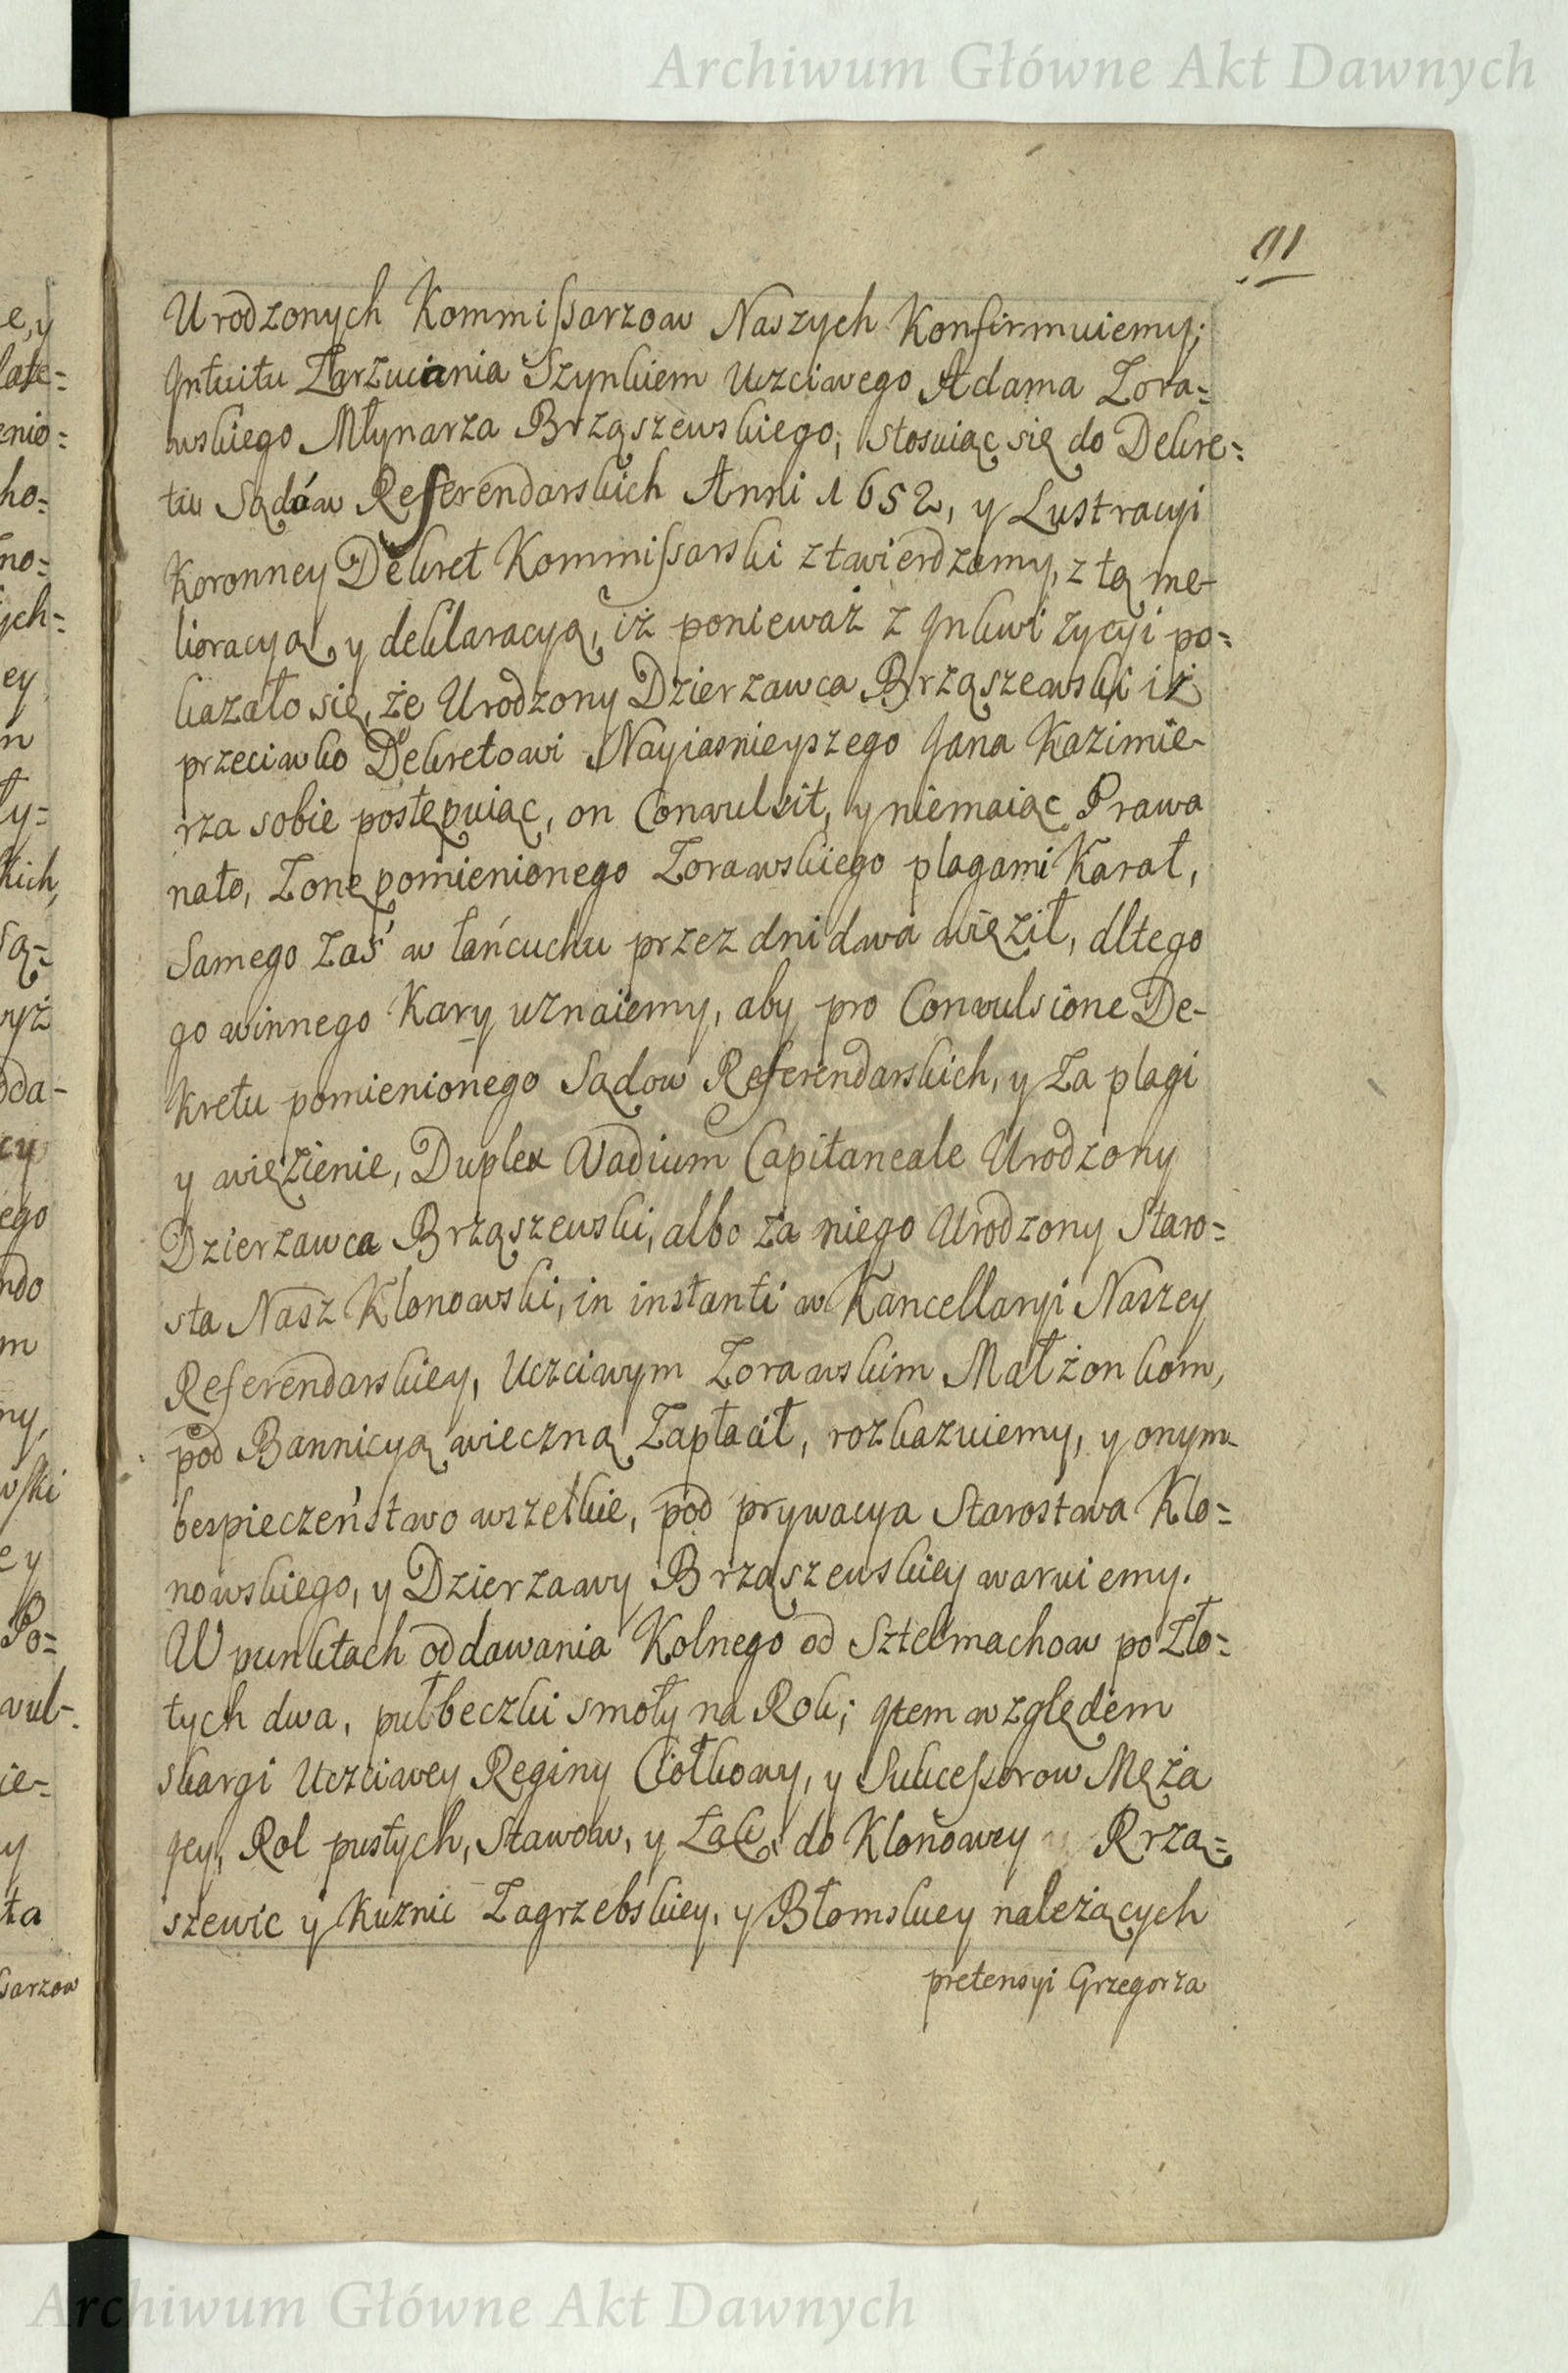 Archiwum Główne Akt Dawnych
91
Urodzonych Kommissarzow Naszych Konfirmuiemy;
Intuitu Zarzucania Szynkiem Uczciwego Adama Zora=
wskiego Młynarza Brząszewskiego, stosuiąc się do Dekre=
tu Sądów Referendarskich Anni 1652, y Lustracyi
Koronney Dekret Kommissarski ztwierdzamy, z tą me-
lioracyą, y deklaracyą, iż ponieważ z Inkwizycyi po=
kazało się, że Urodzony Dzierzawca Brząszewski iż
przeciwko Dekretowi Nayiasnieyszego Jana Kazimie-
rza sobie postępuiąc, on Conwulsit, y niemaiąc Prawa
nato, Zonę pomienionego Zorawskiego plagami Karał,
Samego Zaś w łańcuchu przez dni dwa więził, dltego
go winnego Kary uznaiemy, aby pro Conwulsione De-
kretu pomienionego Sądow Referendarskich, y Za plagi
y więzienie, Duplex Vadium Capitaneale Urodzony
Dzierzawca Brząszewski, albo za niego Urodzony Staro=
sta Nasz Klonowski, in instanti w Kancellaryi Naszey
Referendarskiey, Uczciwym Zorawskim Małżonkom,
pod Bannicyą wieczną Zapłacił, rozkazuiemy, y onym
bespieczeństwo wszelkie, pod prywacya Starostwa Klo=
nowskiego, y Dzierzawy Brząszewskiey waruiemy.
W punktach oddawania Kolnego od Sztelmachow po Zło=
tych dwa, pułbeczki smoły na Rok; Item względem
skargi Uczciwey Reginy Ciołkowy, y Sukcessorow Męża
Jey, Rol pustych, Stawow, y Łąk, do Klonowey Rrzą=
szewic y Kuznic Zagrzebskiey, y Błomskiey należących
pretensyi Grzegorza
Archiwum Główne Akt Dawnych